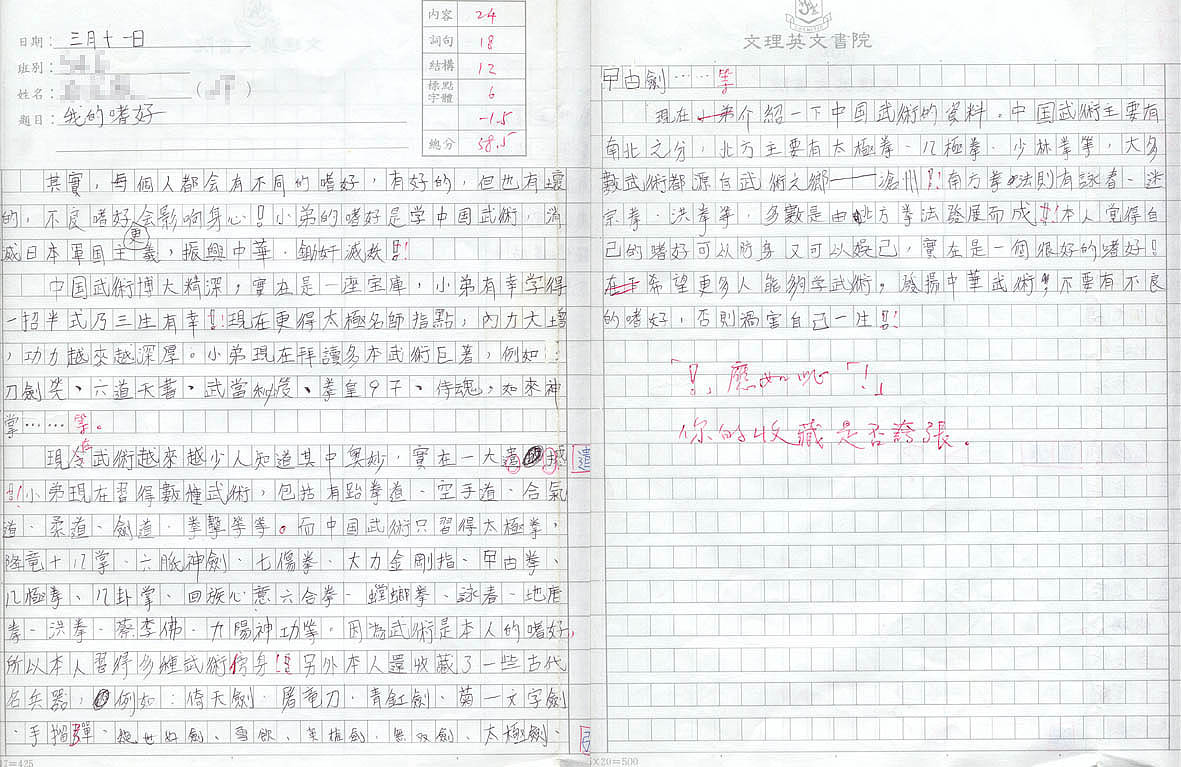 日期：三月十一日
性別：
姓名：（ ）
題目：我的嗜好
內容 24
詞句 18
結構 12
標點字體 6
-1.5
總分 58.5
其實，每個人都会有不同的嗜好，有好的，但也有壞
的，不良嗜好会影响身心！小弟的嗜好是学中国武術，消
滅日本軍国主義，振興中華，鋤奸滅敵！
中国武術博大精深，實在是一座宝庫，小弟有幸学得
一招半式乃三生有幸！現在更得太極名師指點，內力大增
，功力越來越深厚。小弟現在拜讀多本武術巨著，例如：
刀劍笑、六道天書、武當秘笈、拳皇97、侍魂，如來神
掌……等。
現今武術越來越少人知道其中奧妙，實在一大遺憾
！小弟現在習得數種武術，包括有跆拳道、空手道、合氣
道、柔道、劍道、拳擊拳等。而中国武術只習得太極拳，
降竜十八掌、六脈神劍、七傷拳、大力金剛指、甲古拳、
八極拳、八卦掌、回族心意六合拳、螳螂拳、詠春、地唐
拳、洪拳、蔡李佛、九陽神功掌，因為武術是本人的嗜好，
所以本人習得多種武術傍身！另外本人還收藏了一些古代
石兵器，例如：倚天劍、屠竜刀、青釭劍、菊一文字劍
、手榴彈、雪飲、太極劍、
遺
17=425
文理英文書院
甲古劍……等
現在小弟介紹一下中国武術的資料。中国武術主要有
南北之分，北方主要有太極拳、八極拳、少林拳等，大多
數武術都源自武術之鄉——滄州！南方拳法則有詠春、迷
宗拳、洪拳等，多數是由北方拳法發展而成！本人覚得自
己的嗜好可以防身又可以娛己，實在是一個很好的嗜好！
在于希望更多人能夠学武術，發揚中華武術，不要有不良
的嗜好，否則禍害自己一生！
「！」應如此「！」
你的收藏是否誇張。
X20=500